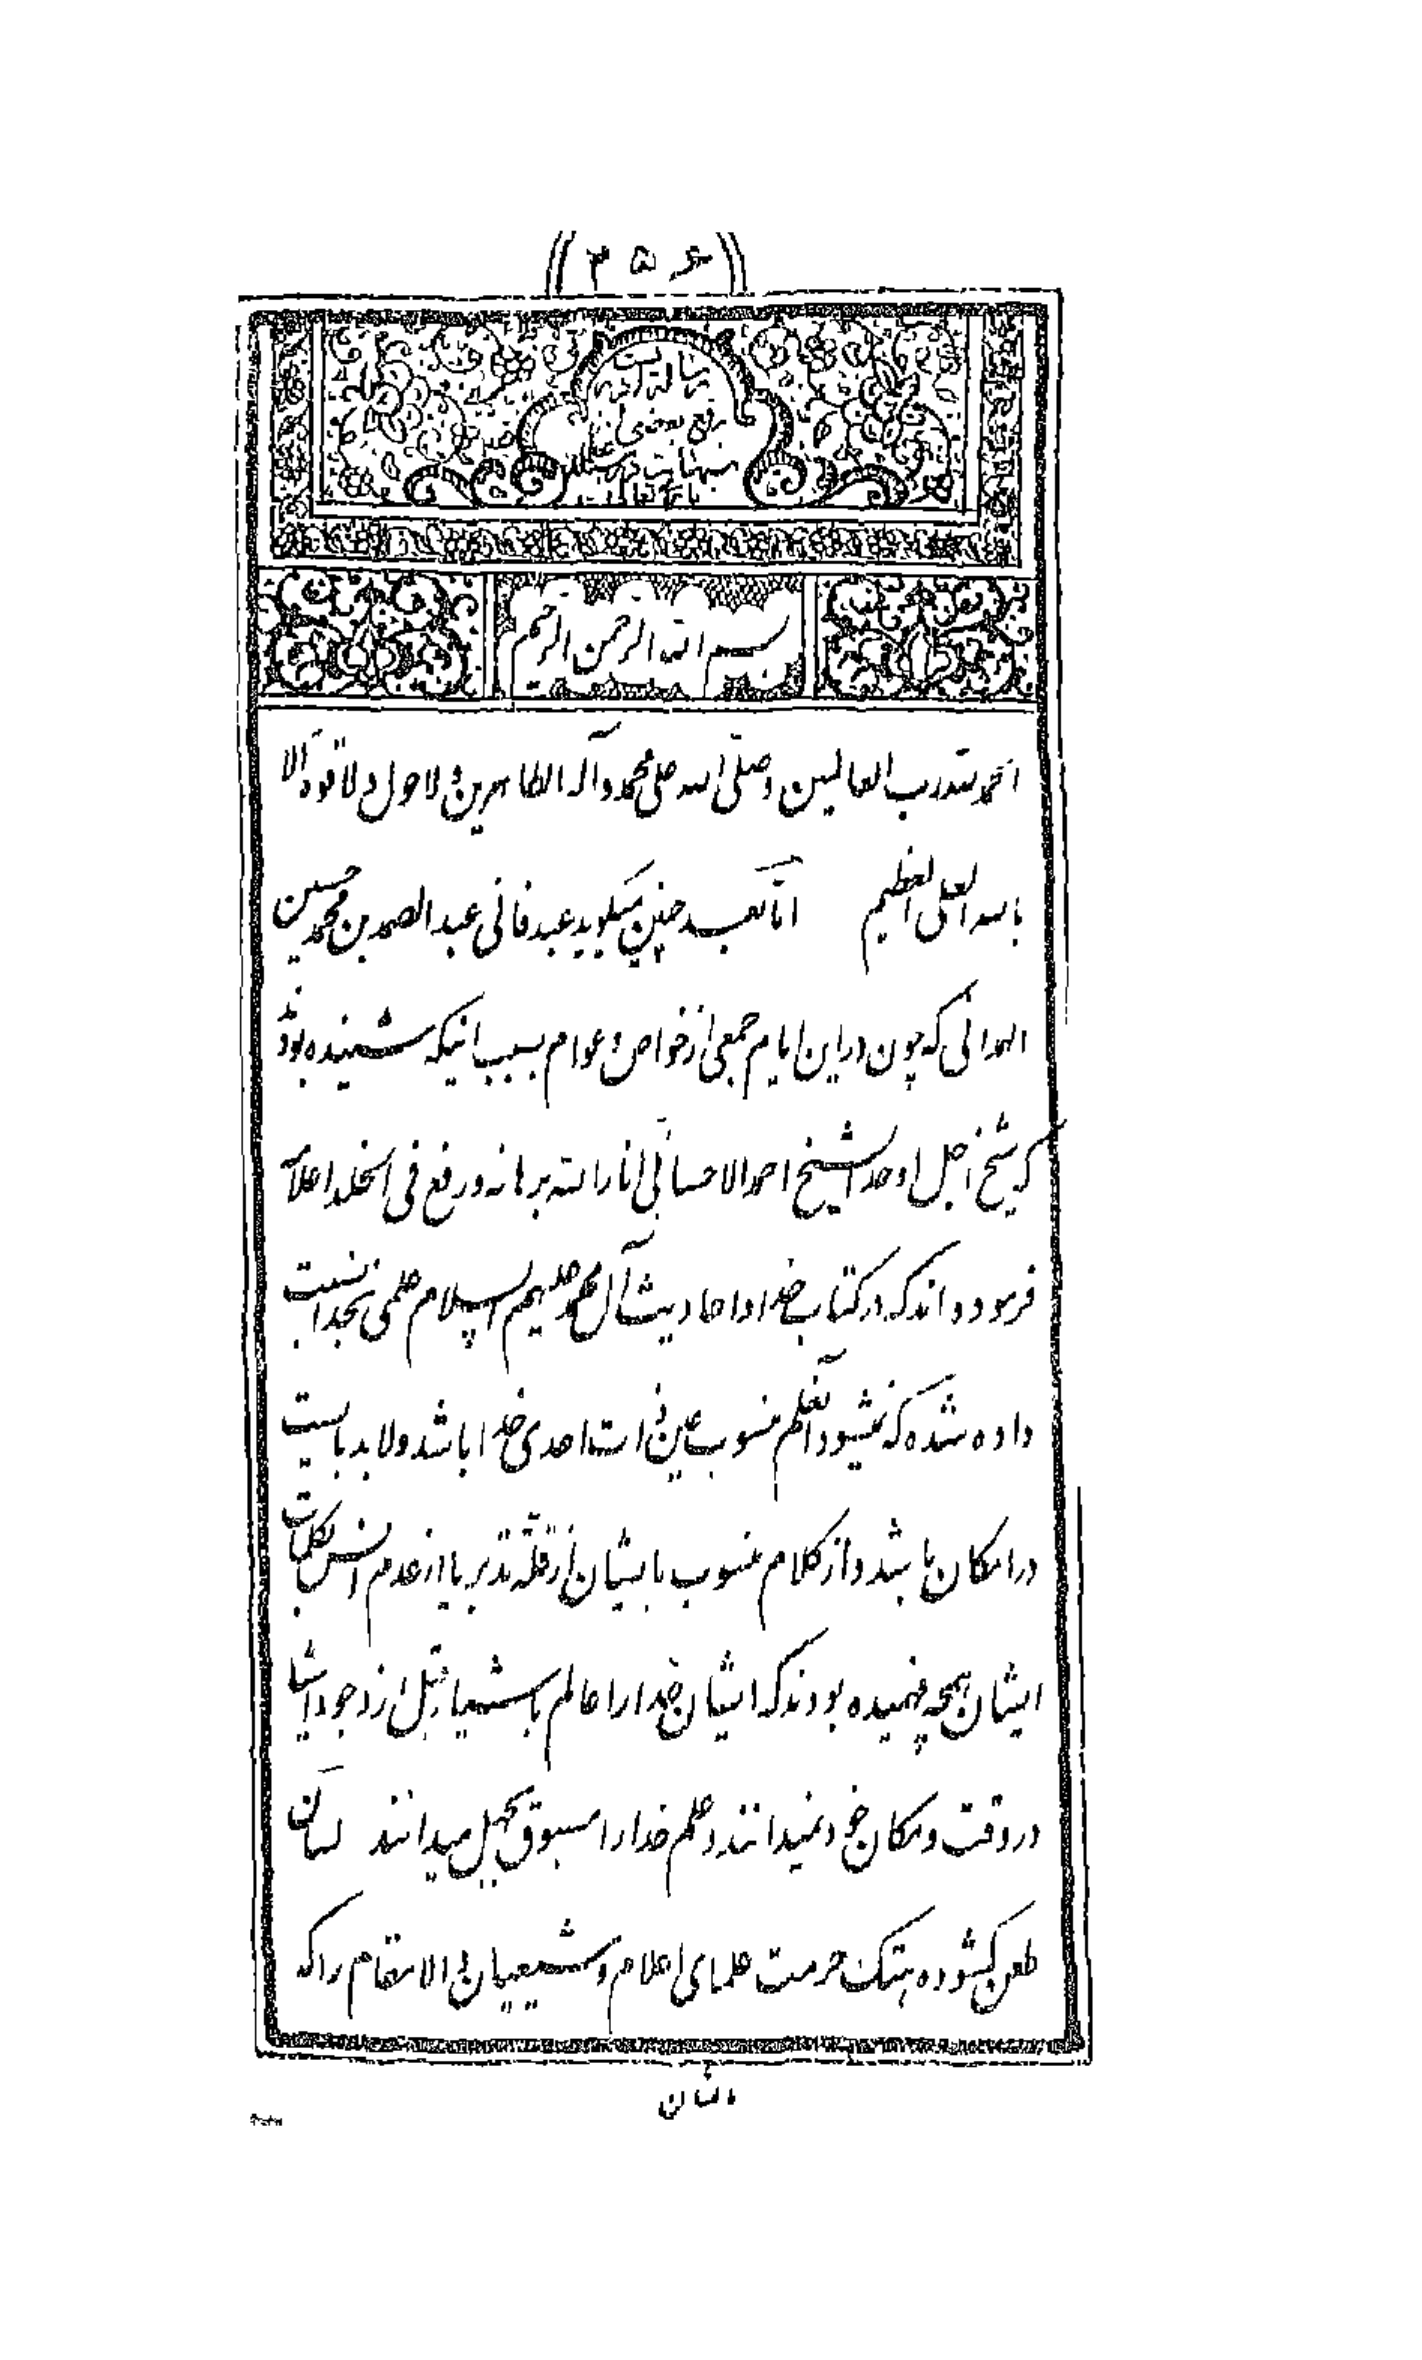 ۳۵۶
رساله ایست در
رفع بعضی از
شبهات در مسئله
بسم الله الرحمن الرحیم
الحمد لله رب العالمین وصلّی الله علی محمد وآله الطاهرین ولا حول ولا قوة الّا
بالله العلی العظیم امّا بعد چنین میگوید عبد فانی عبد الصمد بن محمد حسین
الهمدانی که چون در این ایام جمعی از خواص و عوام بسبب اینکه شنیده بودند
که شیخ اجل اوحد الشیخ احمد الاحسائی انار الله برهانه ورفع فی الخلد اعلامه
فرموده اند که در کتاب خدا و احادیث آل محمد علیهم السلام علمی بخدا نسبت
داده شده که نمیشود آنعلم منسوب عین ذات احدی خدا باشد ولابد بایست
در امکان باشد و از کلام منسوب بایشان از قلّة تدبر یا از عدم انس بکلمات
ایشان همچه فهمیده بودند که ایشان خدا را عالم باشیاء قبل از وجود اشیا
در وقت و مکان خود نمیدانند و علم خدا را مسبوق بجهل میدانند لسان
طعن گشوده هتک حرمت علمای اعلام و شیعیان ذو الاحتقام را که